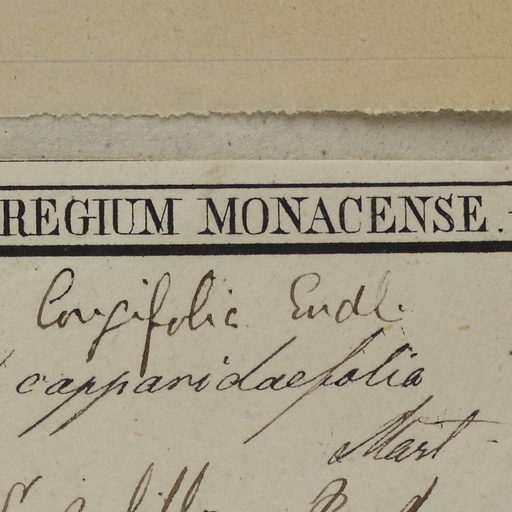 REGIUM MONACENSE.
longifolia Endl.
capparidaefolia
Mart